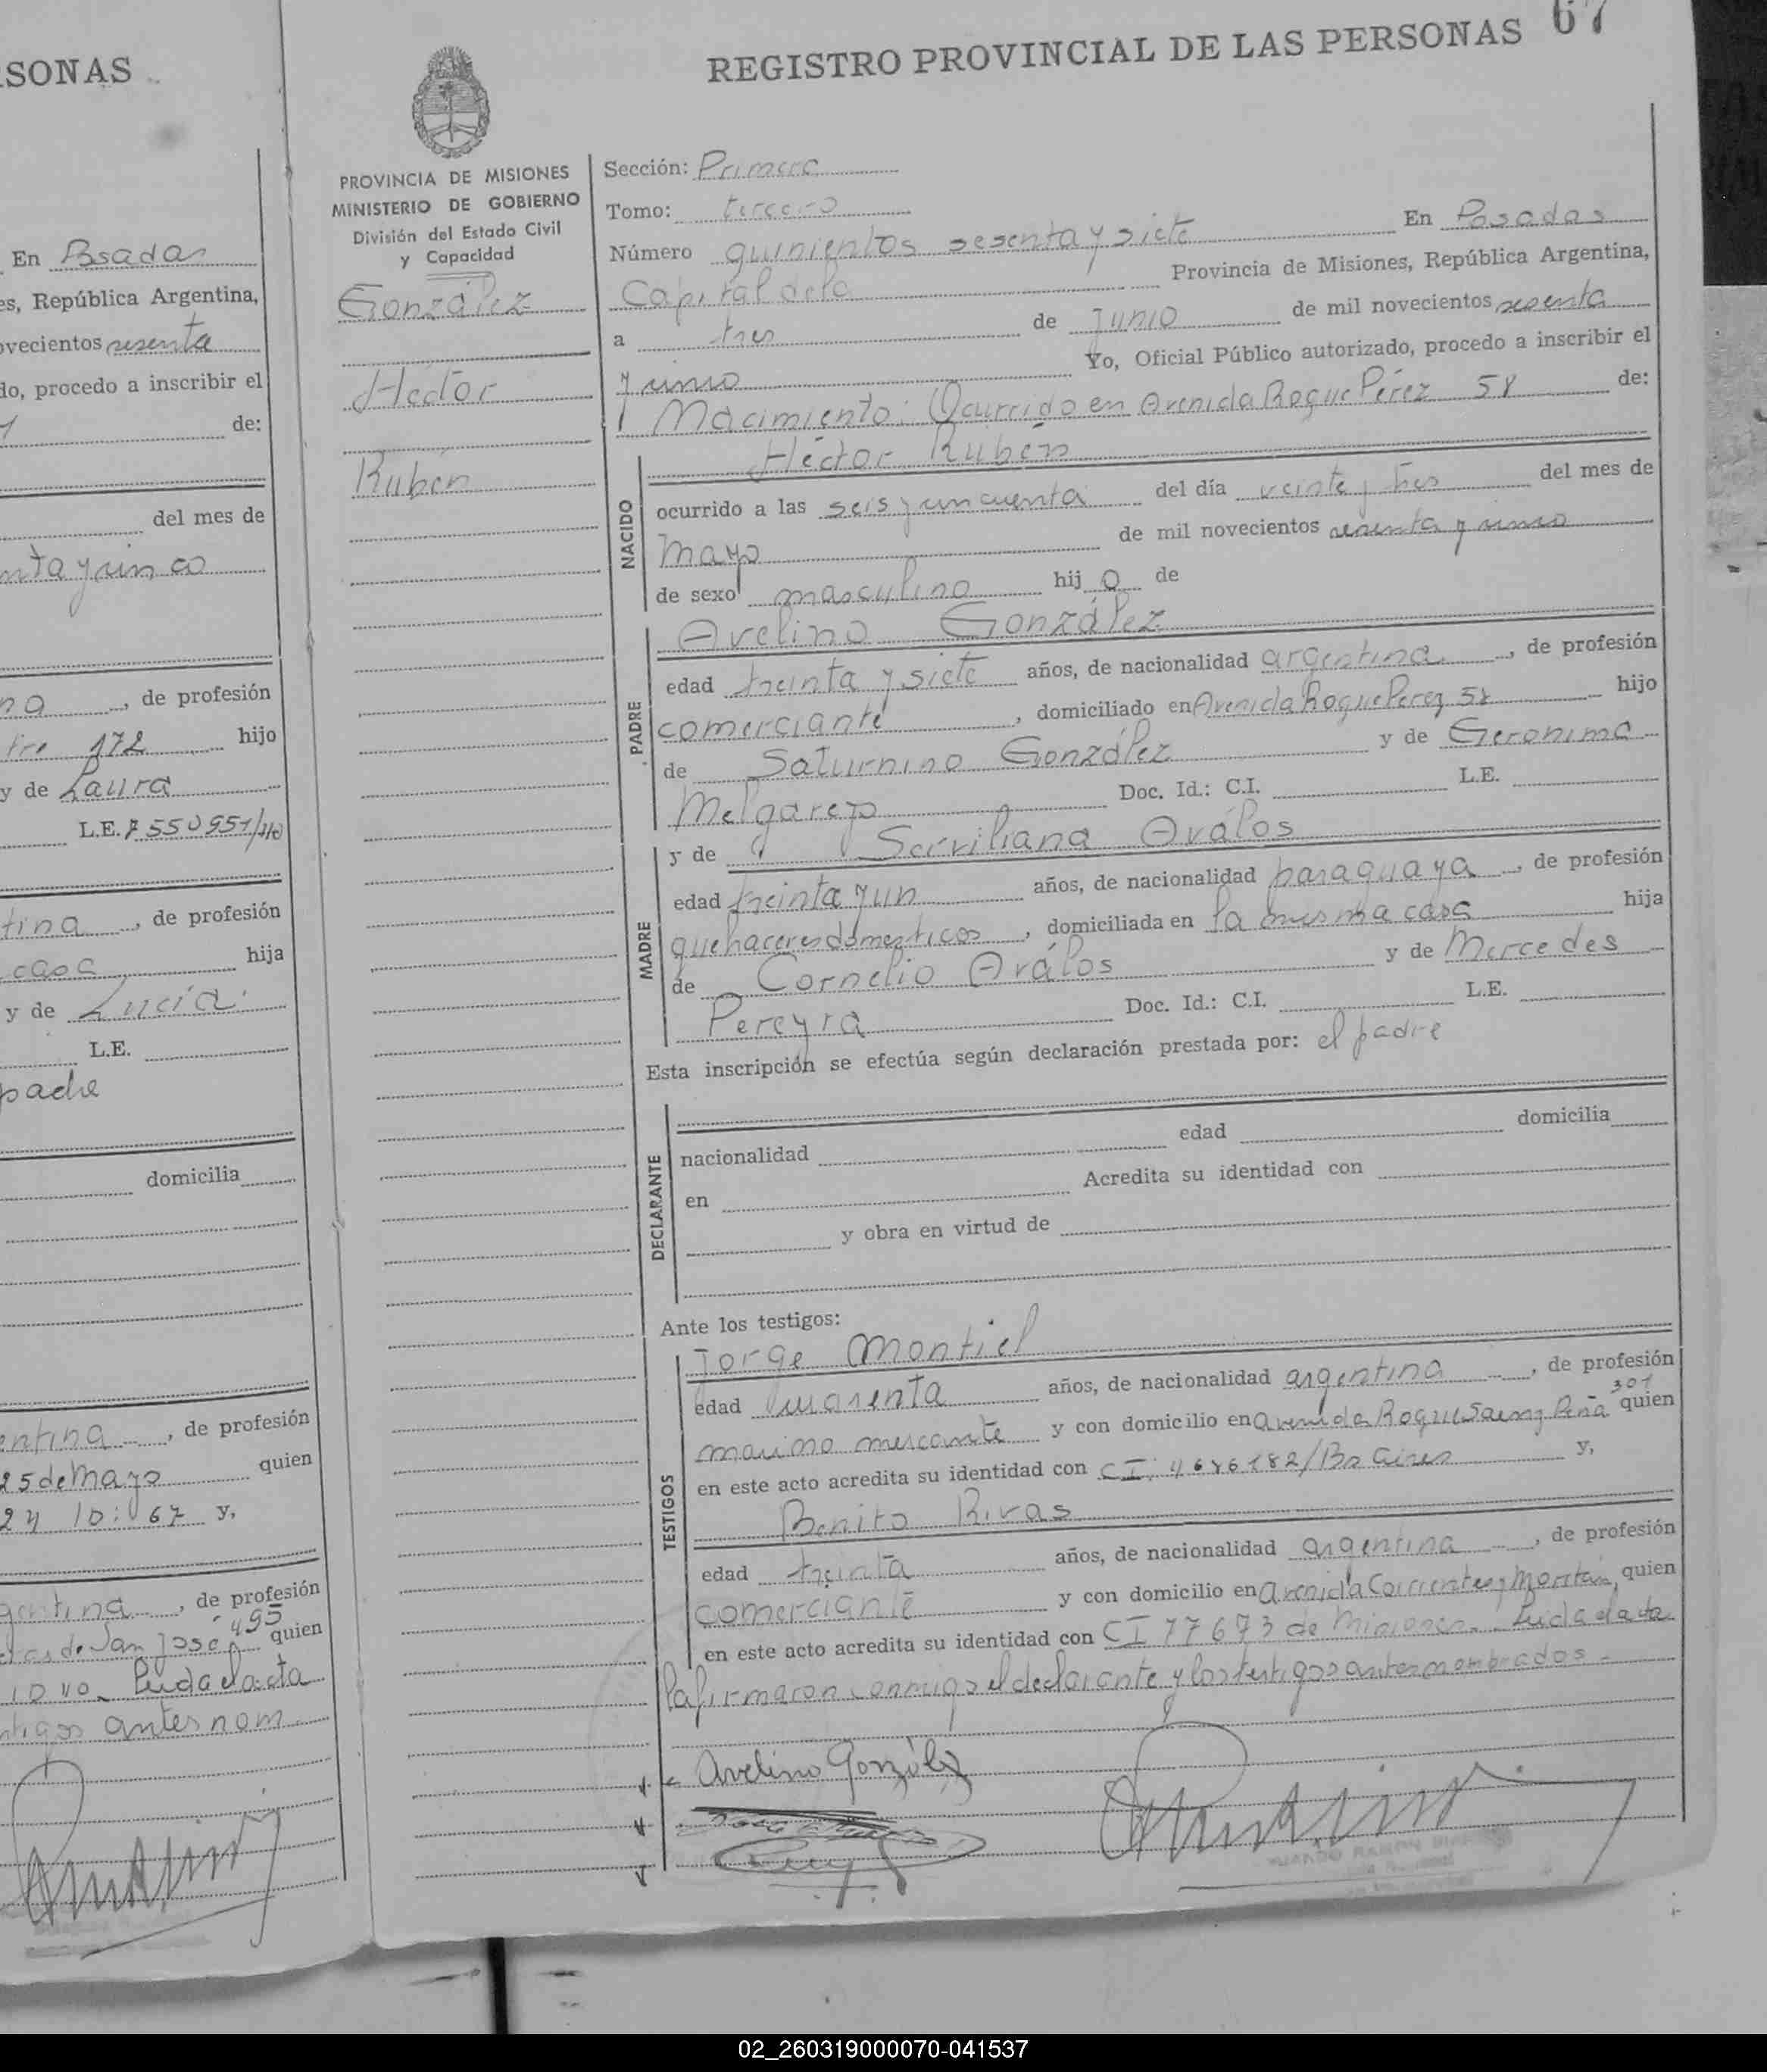 SONAS
En Posadas
es, República Argentina,
ovecientos sesenta
do, procedo a inscribir el
de:
del mes de
nta y cinco
na, de profesión
tre 172 hijo
y de Laura
L.E. 7550951
tina, de profesión
casa hija
y de Lucía
L.E.
padre
domicilia
entina, de profesión
25 de Mayo quien
24 10:67 y,
gentina, de profesión
495
de San José quien
Leida el acta
ntigos antes nom
REGISTRO PROVINCIAL DE LAS PERSONAS 67
PROVINCIA DE MISIONES
MINISTERIO DE GOBIERNO
División del Estado Civil
y Capacidad
González
Héctor
Rubén
Sección: Primera
Tomo: tercero
Número quinientos sesenta y siete En Posadas
Capital de la Provincia de Misiones, República Argentina,
a tres de Junio de mil novecientos sesenta
y cinco Yo, Oficial Público autorizado, procedo a inscribir el
Nacimiento: Ocurrido en Avenida Roque Pérez 58 de:
Héctor Rubén
NACIDO
ocurrido a las seis y cincuenta del día veinte y tres del mes de
mayo de mil novecientos sesenta y cinco
de sexo masculino hijo de
Avelino González
PADRE
edad treinta y siete años, de nacionalidad argentina, de profesión
comerciante, domiciliado en Avenida Roque Perez 58 hijo
de Saturnino González y de Geronima
Melgarejo Doc. Id.: C.I. L.E.
y de Serviliana Oválos
MADRE
edad treinta y un años, de nacionalidad paraguaya, de profesión
quehaceres domesticos, domiciliada en la misma casa hija
de Cornelio Oválos y de Mercedes
Pereyra Doc. Id.: C.I. L.E.
Esta inscripción se efectúa según declaración prestada por: el padre
DECLARANTE
nacionalidad edad domicilia
en Acredita su identidad con
y obra en virtud de
Ante los testigos:
TESTIGOS
Jorge Montiel
edad cuarenta años, de nacionalidad argentina, de profesión
marino mercante y con domicilio en avenida Roque Saenz Peña 301 quien
en este acto acredita su identidad con CI. 4686182/Bs Aires y,
Benito Rivas
edad treinta años, de nacionalidad argentina, de profesión
comerciante y con domicilio en avenida Corrientes y quien
en este acto acredita su identidad con CI 77673 de Misiones. Leida el acta
la firmaron conmigo el declarante y los testigos antes nombrados.-
Avelino González
02_260319000070-041537